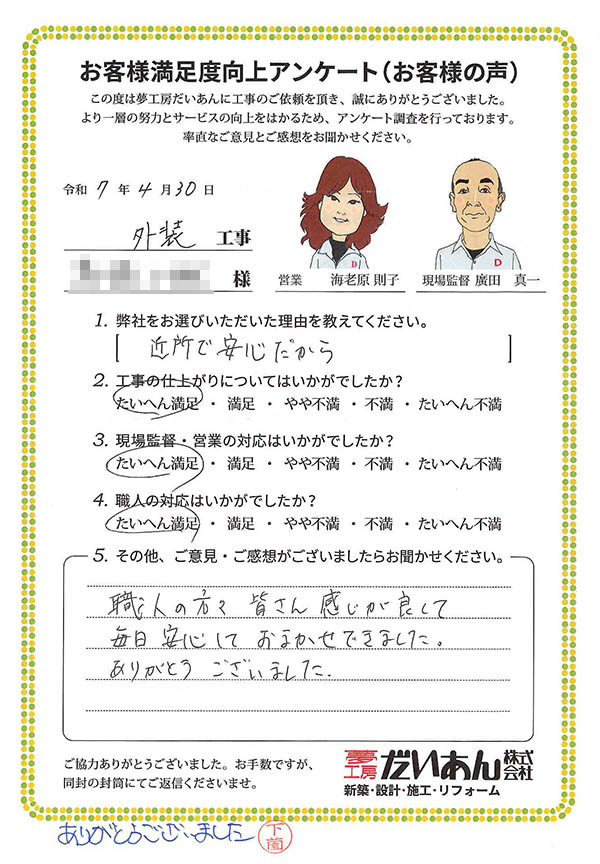 お客様満足度向上アンケート(お客様の声)
この度は夢工房だいあんに工事のご依頼を頂き、誠にありがとうございました。
より一層の努力とサービスの向上をはかるため、アンケート調査を行っております。
率直なご意見とご感想をお聞かせください。
令和 7 年 4 月 30 日
外装 工事
様
D
D
営業 海老原 則子
現場監督 廣田 真一
1. 弊社をお選びいただいた理由を教えてください。
[ 近所で安心だから ]
2. 工事の仕上がりについてはいかがでしたか?
たいへん満足 ・ 満足 ・ やや不満 ・ 不満 ・ たいへん不満
3. 現場監督・営業の対応はいかがでしたか?
たいへん満足 ・ 満足 ・ やや不満 ・ 不満 ・ たいへん不満
4. 職人の対応はいかがでしたか?
たいへん満足 ・ 満足 ・ やや不満 ・ 不満 ・ たいへん不満
5. その他、ご意見・ご感想がございましたらお聞かせください。
職人の方々 皆さん 感じが良くて
毎日 安心して おまかせできました。
ありがとう ございました.
ご協力ありがとうございました。お手数ですが、
同封の封筒にてご返信くださいませ。
夢工房 だいあん 株式会社
新築・設計・施工・リフォーム
ありがとうございました 下薗